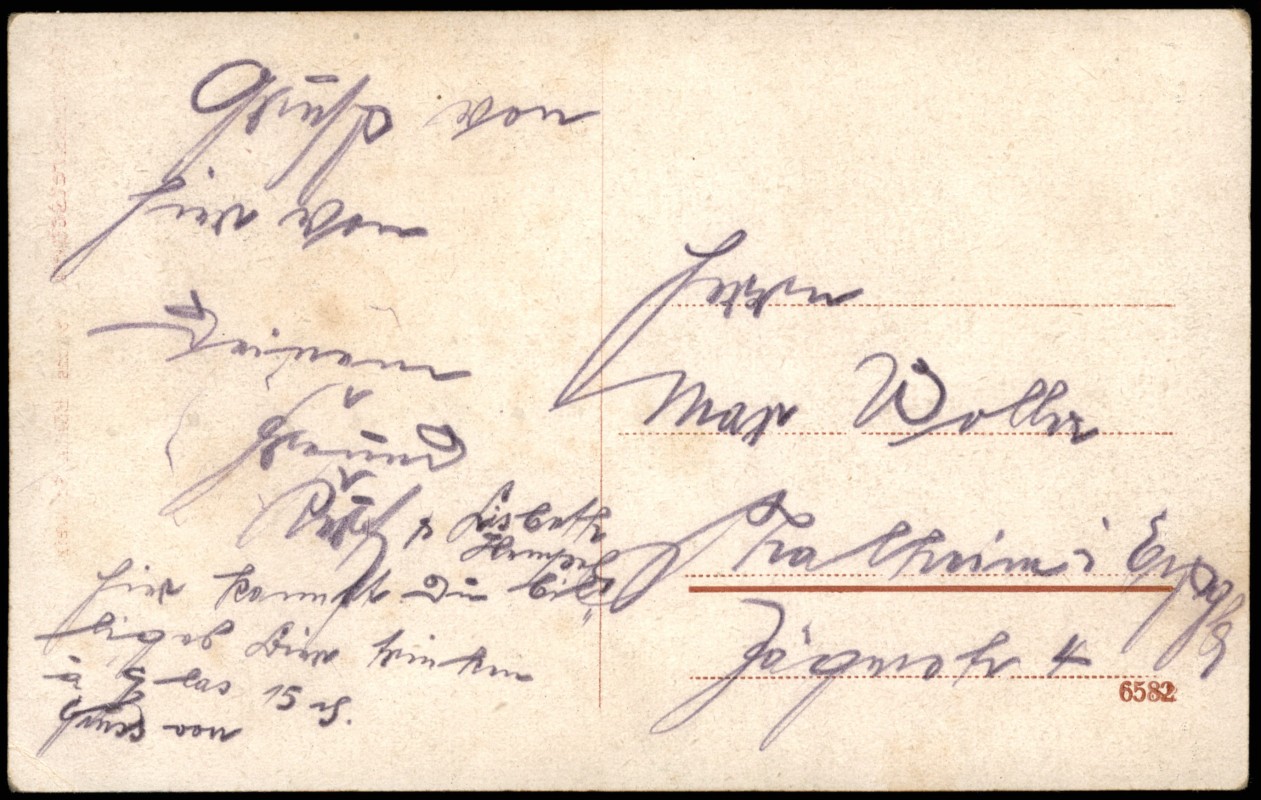 Gruß von
hier von
Deinem
Freund
Lisbeth
Hempel
hier kannst Du bil„
liges Bier trinken
à Glas 15 ₰.
Gruss von
Herrn
Max Woller
Thalheim i Erzgb
Jägerstr 4
6582